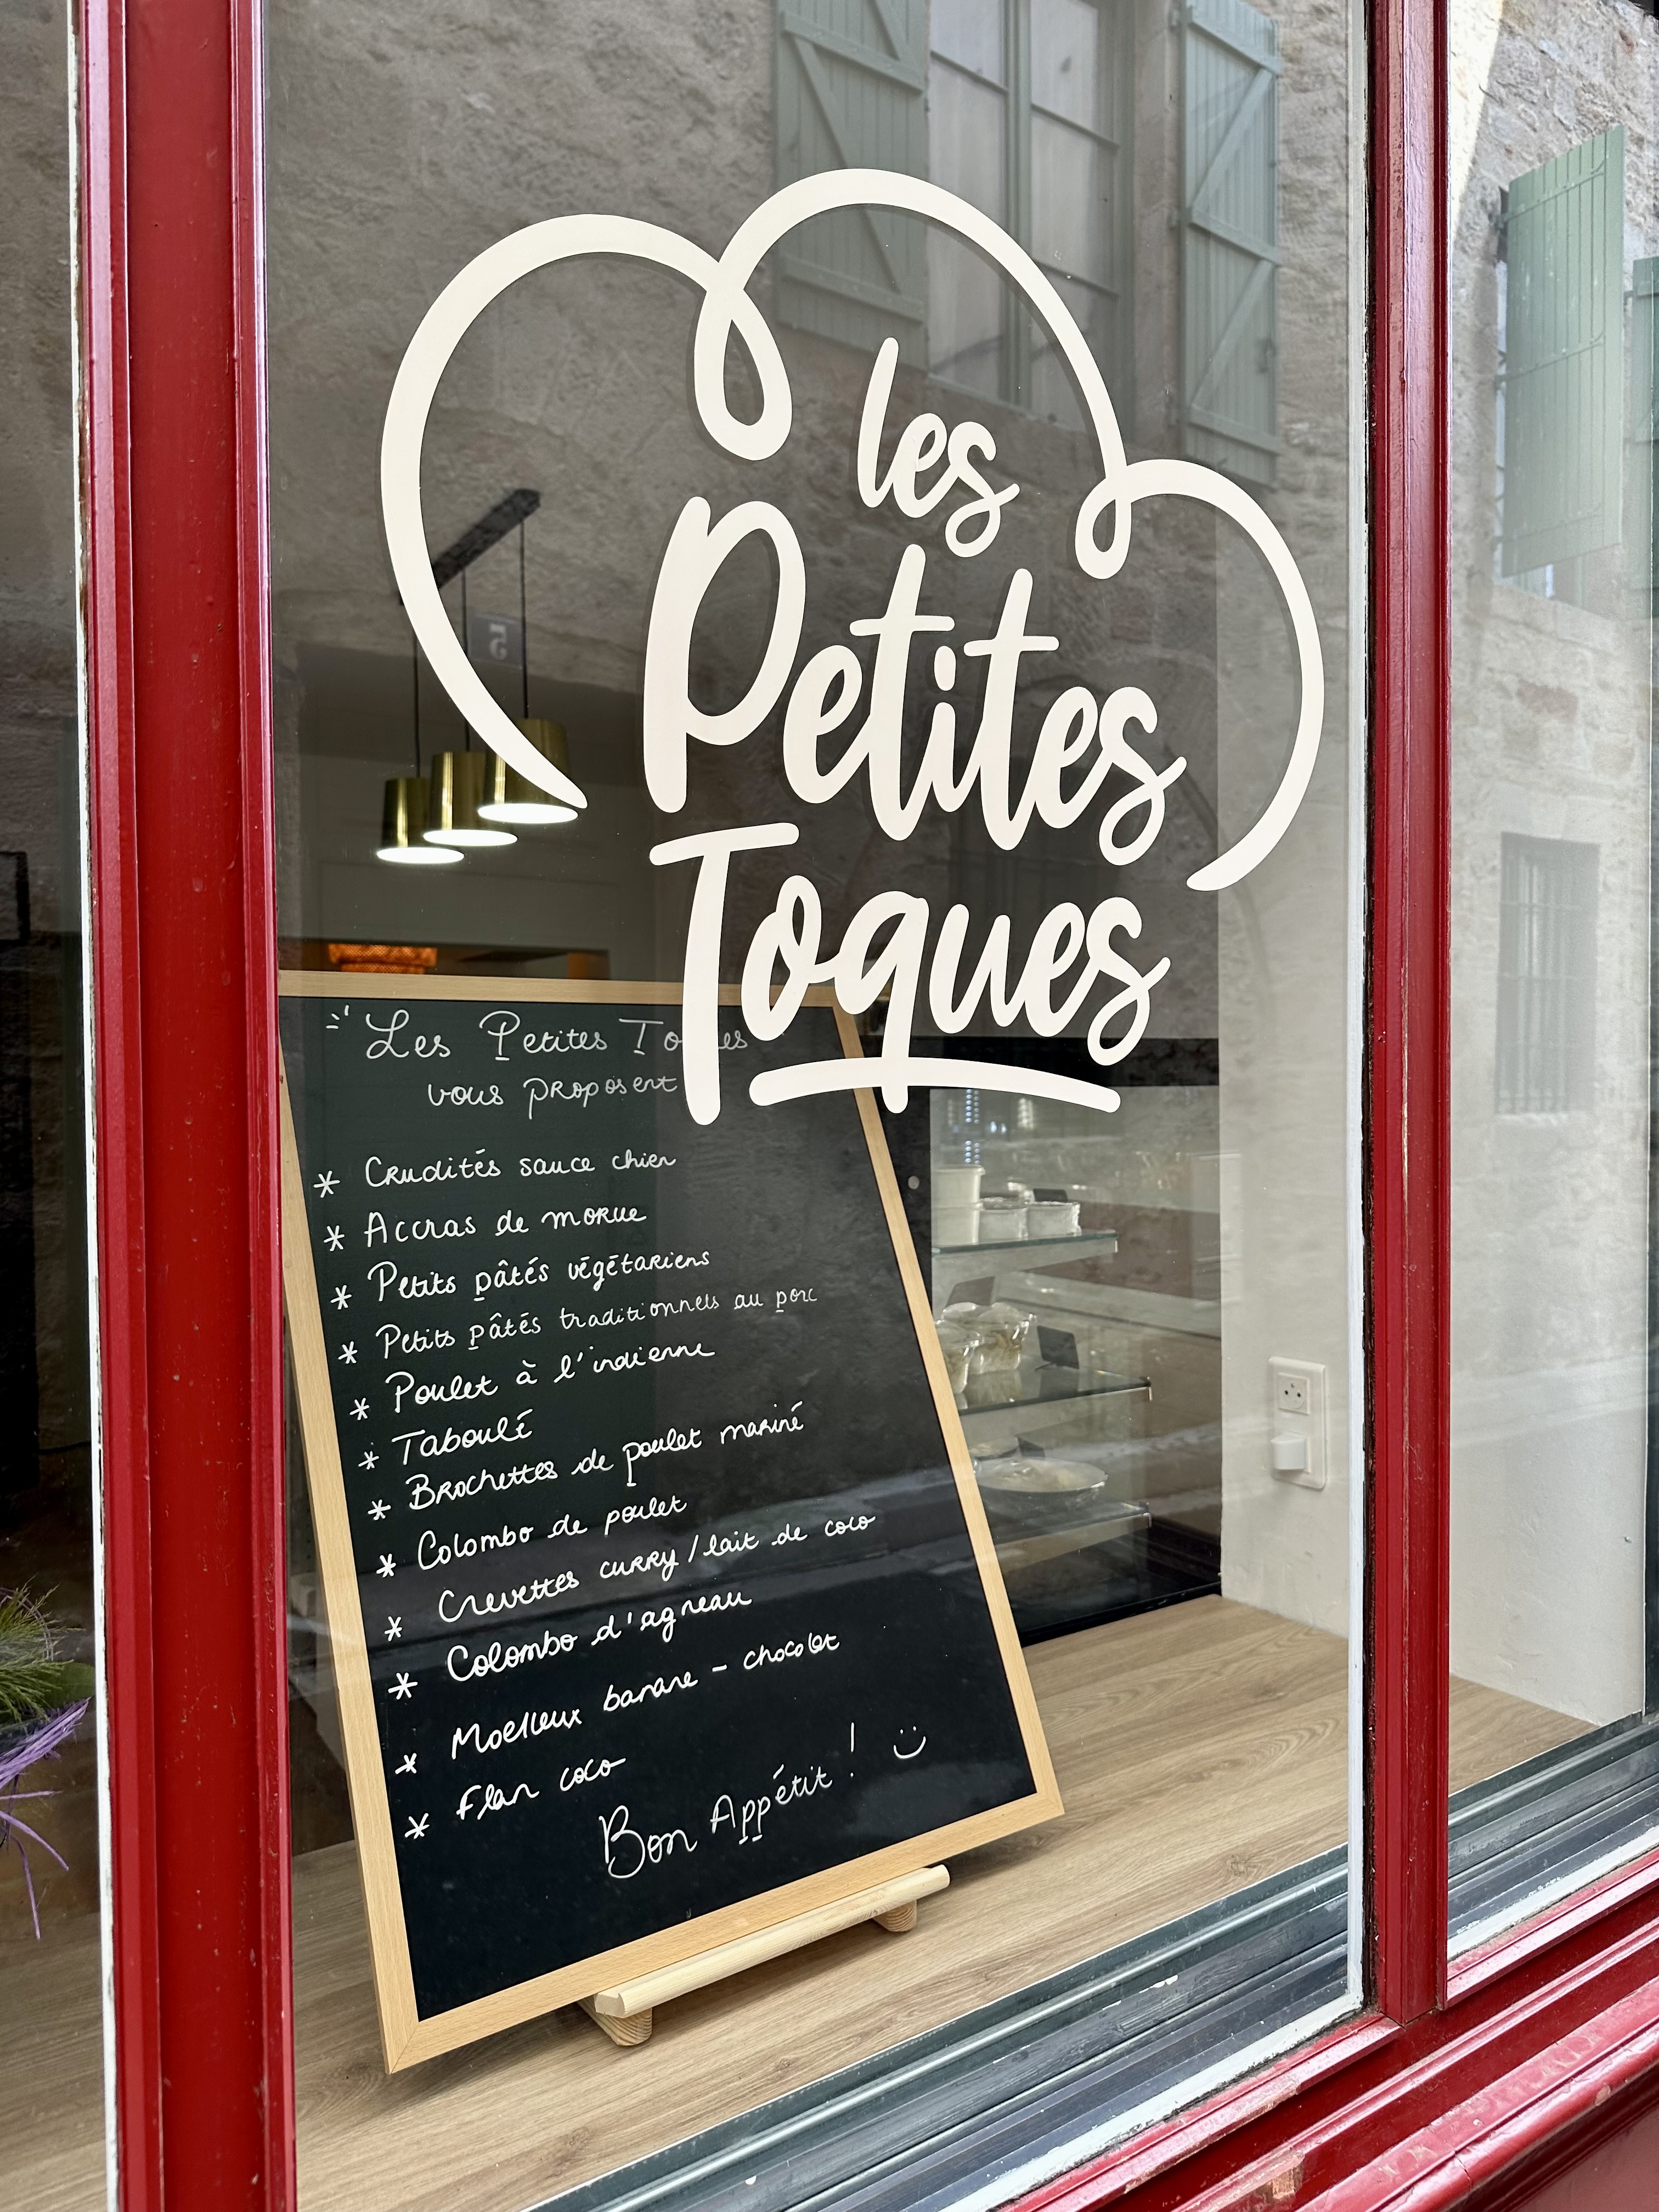 les
Petites
Toques
Les Petites Toques
vous proposent
* Crudités sauce chien
* Accras de morue
* Petits pâtés végétariens
* Petits pâtés traditionnels au porc
* Poulet à l'indienne
* Taboulé
* Brochettes de poulet mariné
* Colombo de poulet
* Crevettes curry / lait de coco
* Colombo d'agneau
* Moelleux banane - chocolat
* Flan coco
Bon Appétit !
5